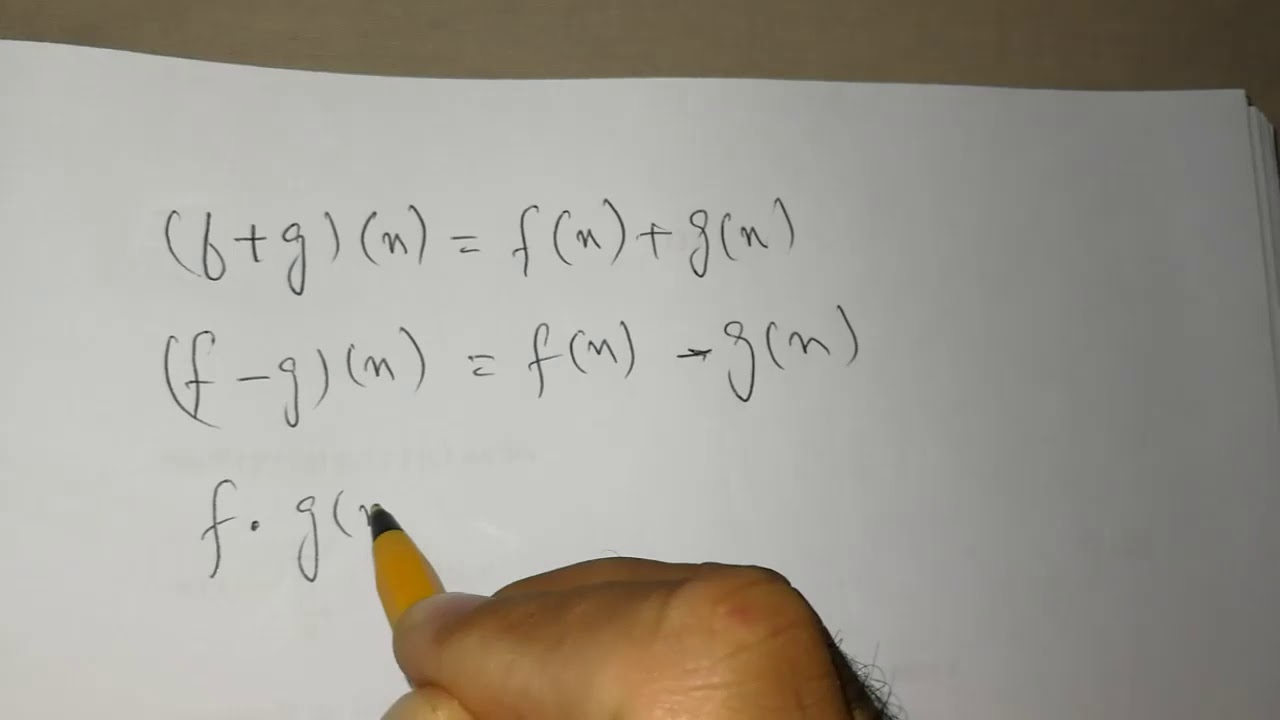 (f+g)(x) = f(x)+g(x)
(f-g)(x) = f(x) - g(x)
f. g(x